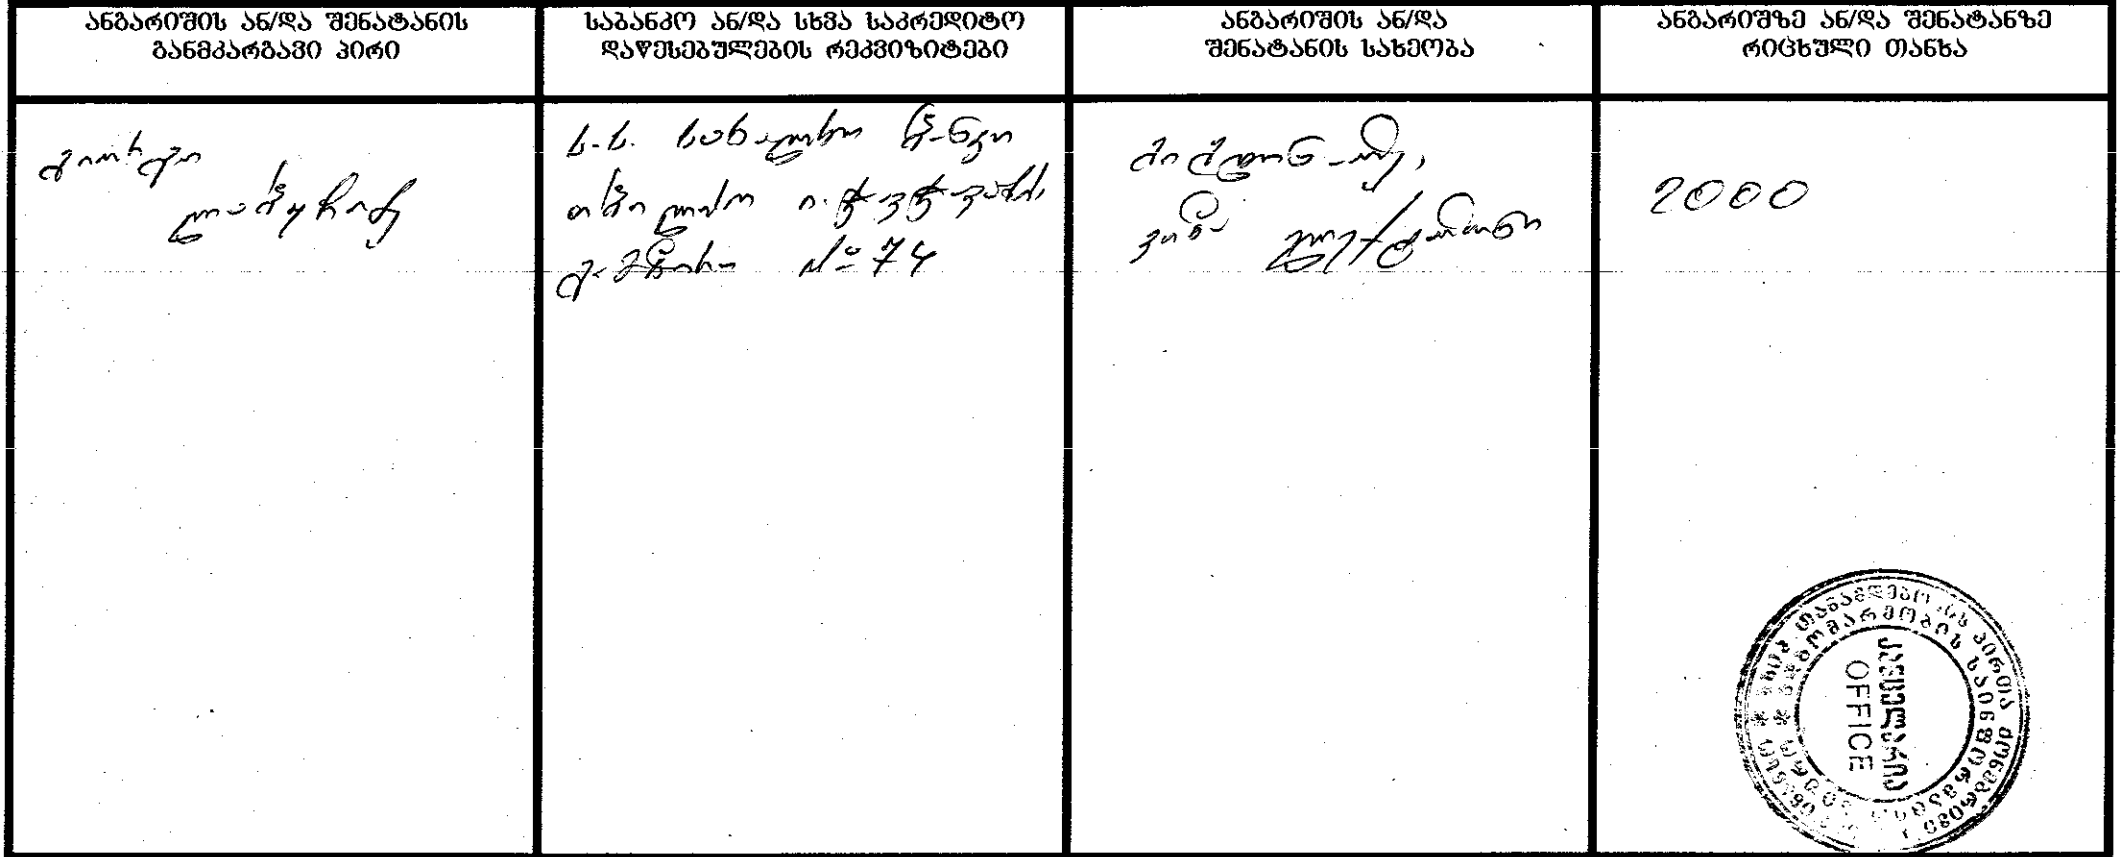 ანგარიშის ან/და შენატანის
განმკარგავი პირი
საბანკო ან/და სხვა საკრედიტო
დაწესებულების რეკვიზიტები
ანგარიშის ან/და
შენატანის სახეობა
ანგარიშზე ან/და შენატანზე
რიცხული თანხა
გიორგი
ს.ს. სახალხო ბანკი
თბილისი ი. ჭავჭავაძის
გამზირი №74
მიმდინარე,
2000
კანცელარია
OFFICE